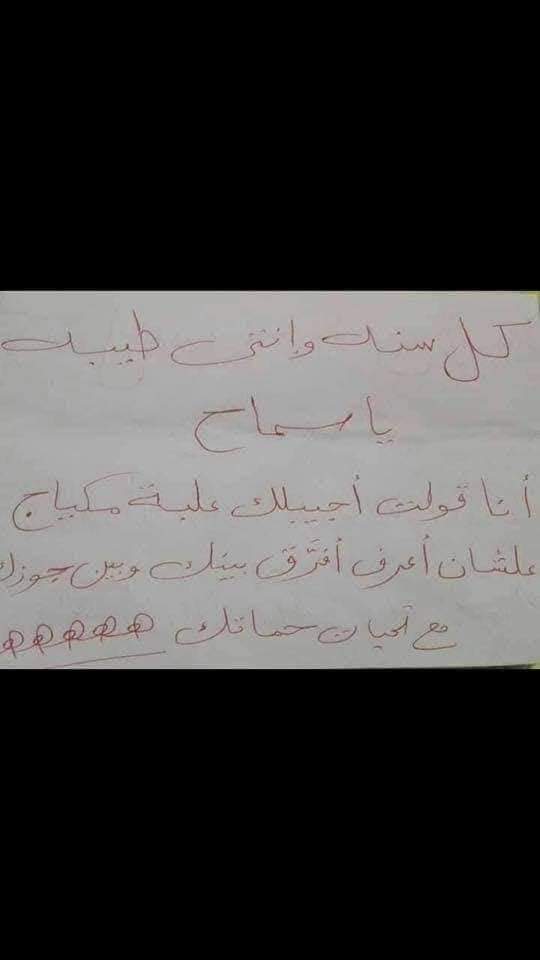 كل سنه وإنتى طيبه
يا سماح
أنا قولت أجيبلك علبة مكياج
علشان أعرف أفرَّق بينك وبين جوزك
مع تحيات حماتك ههههههه